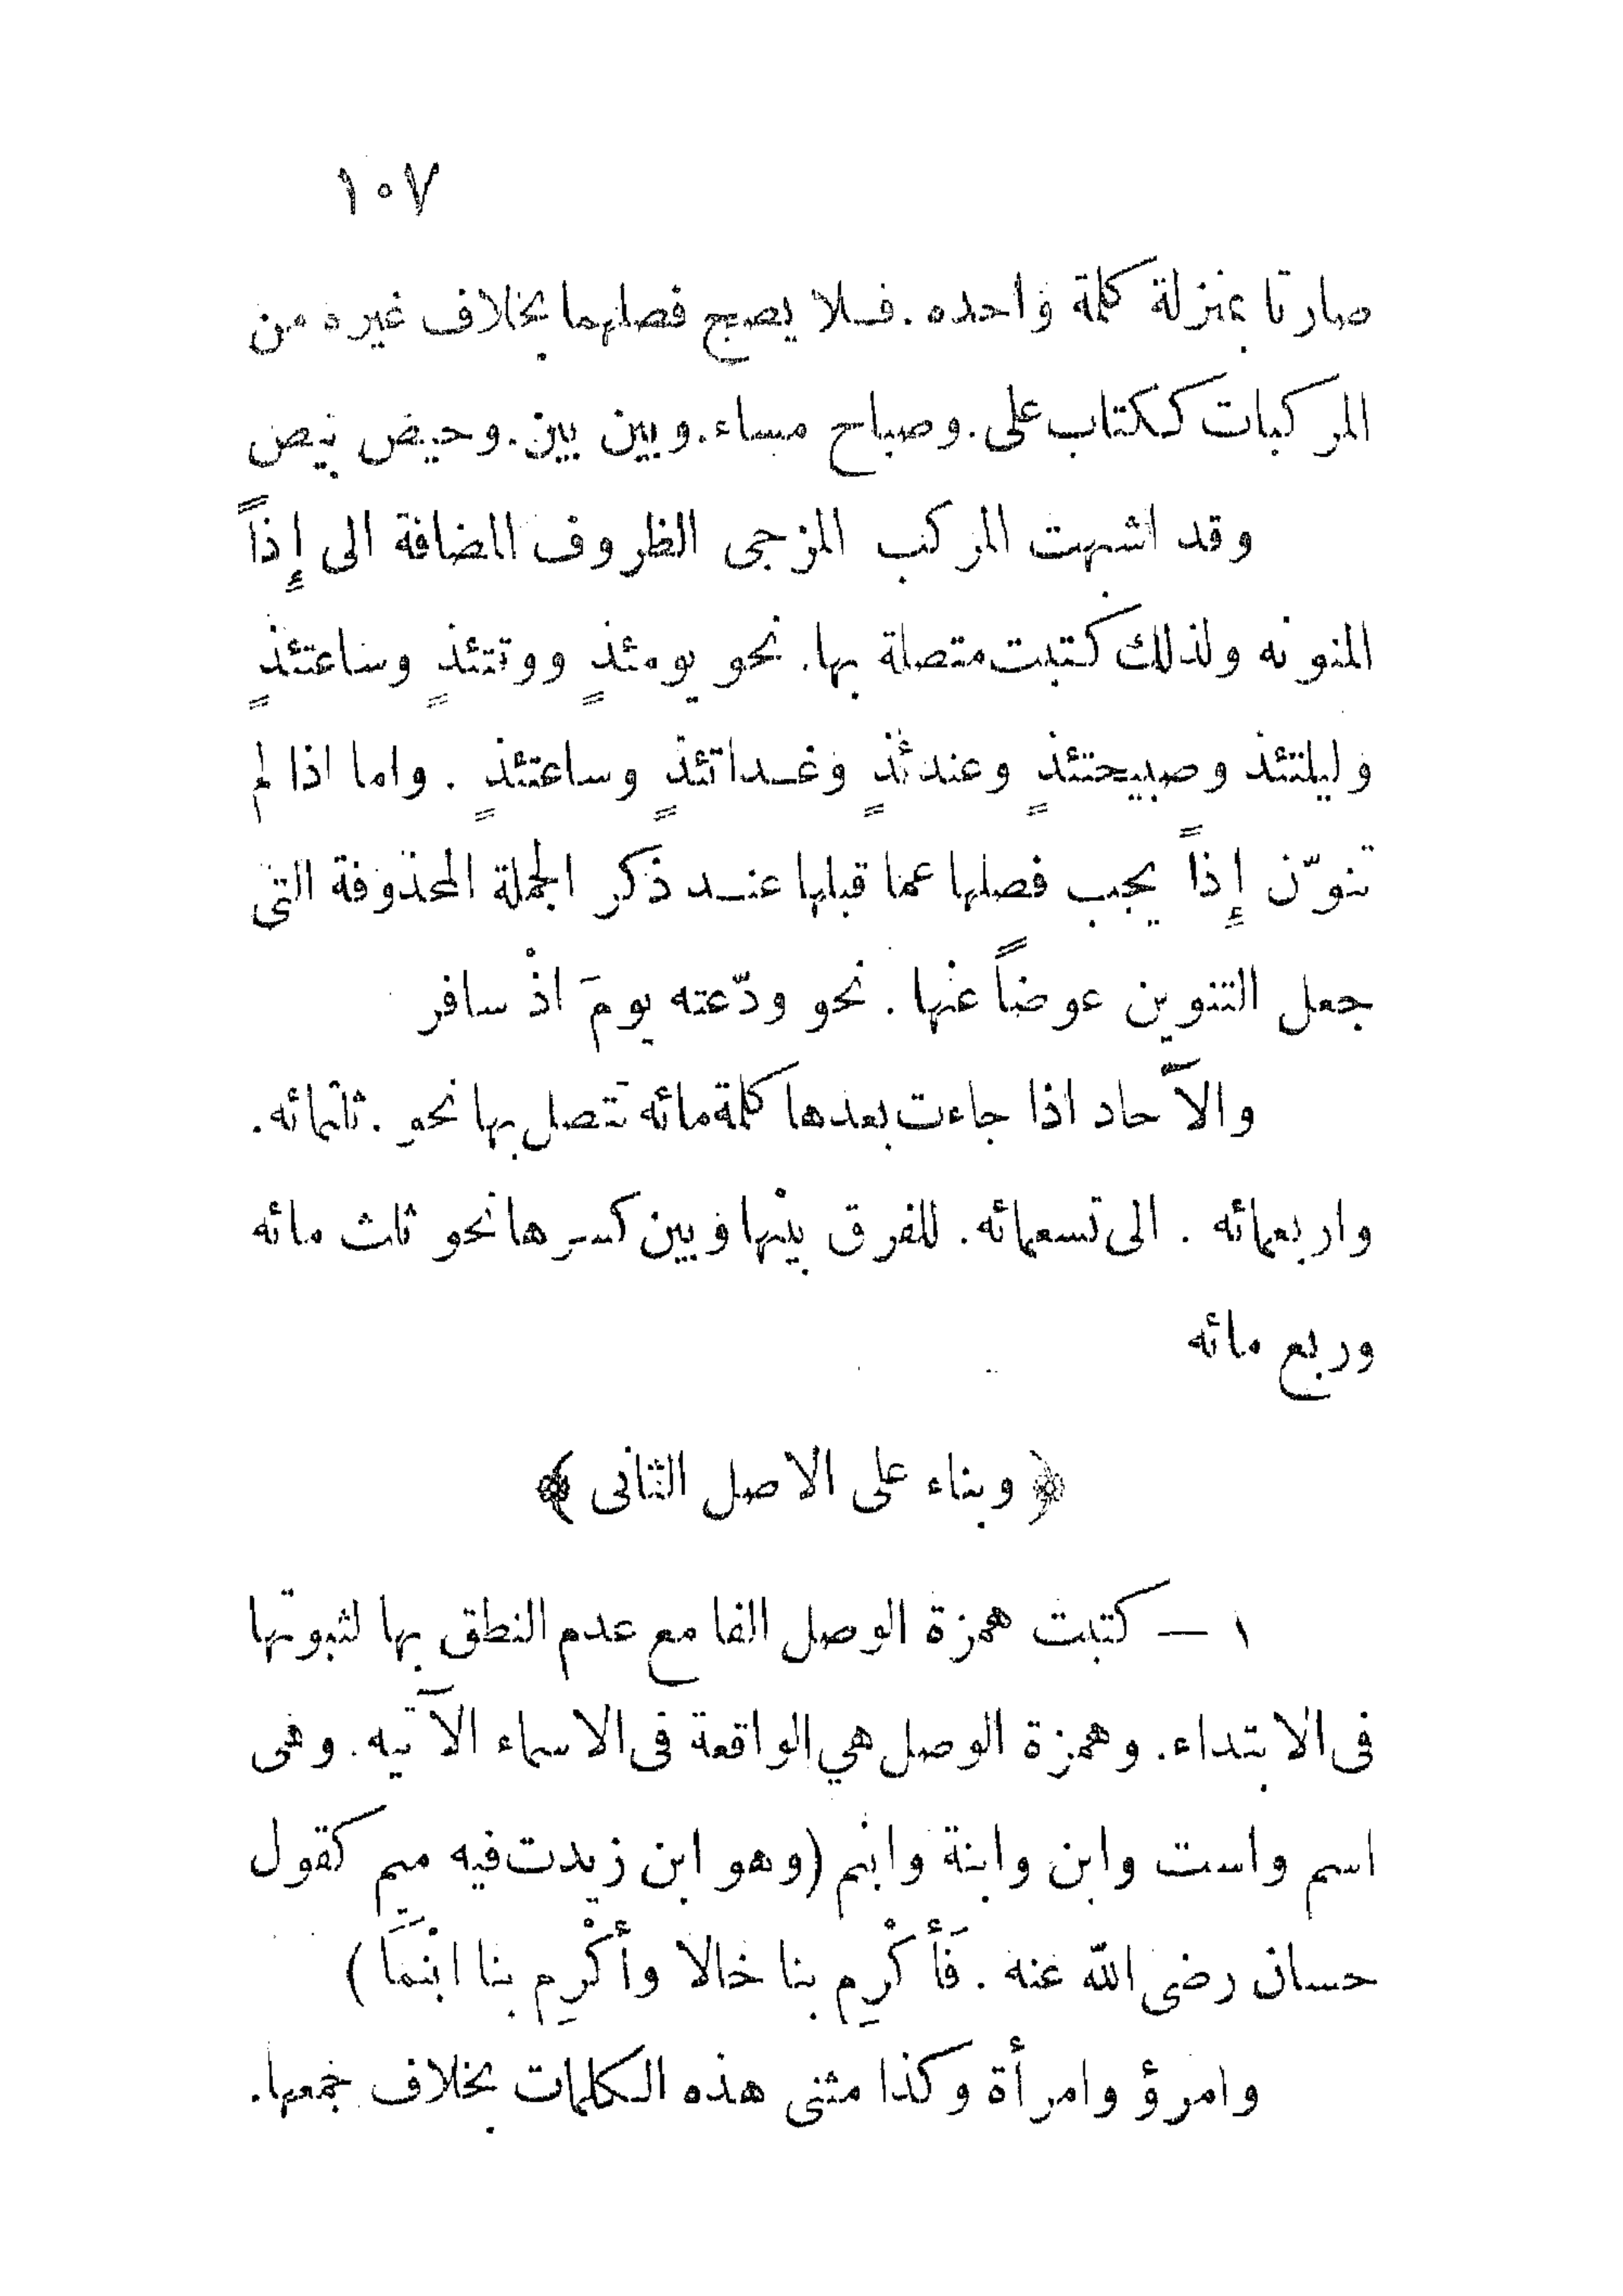 ١٠٧
صارتا بمنزلة كلمة واحده. فلا يصح فصلهما بخلاف غيره من
المركبات ككتاب على. وصباح مساء. وبين بين. وحيض بيص
وقد اشبهت المركب المزجى الظروف المضافة الى إِذاً
المنونه ولذلك كتبت متصلة بها. نحو يومئذٍ ووقتئذٍ وساعتئذٍ
وليلتئذ وصبيحتئذٍ وعندئذٍ وغداتئذٍ وساعتئذٍ . واما اذا لم
تنوّن إِذاً يجب فصلها عما قبلها عند ذكر الجملة المحذوفة التى
جعل التنوين عوضاً عنها . نحو ودّعته يومَ اذْ سافر
والآحاد اذا جاءت بعدها كلمة مائه تتصل بها نحو . ثلثمائه.
واربعمائه . الى تسعمائه. للفرق بينها وبين كسرها نحو ثلث مائه
وربع مائه
﴿ وبناء على الاصل الثانى ﴾
١ — كتبت همزة الوصل الفا مع عدم النطق بها لثبوتها
فى الابتداء. وهمزة الوصل هي الواقعة فى الاسماء الآتيه. وهى
اسم واست وابن وابنة وابنم (وهو ابن زيدت فيه ميم كقول
حسان رضى الله عنه . فَأَكْرِم بنا خالا وأَكْرِم بنا ابْنَمَا )
وامرؤ وامرأة وكذا مثنى هذه الكلمات بخلاف جمعها.